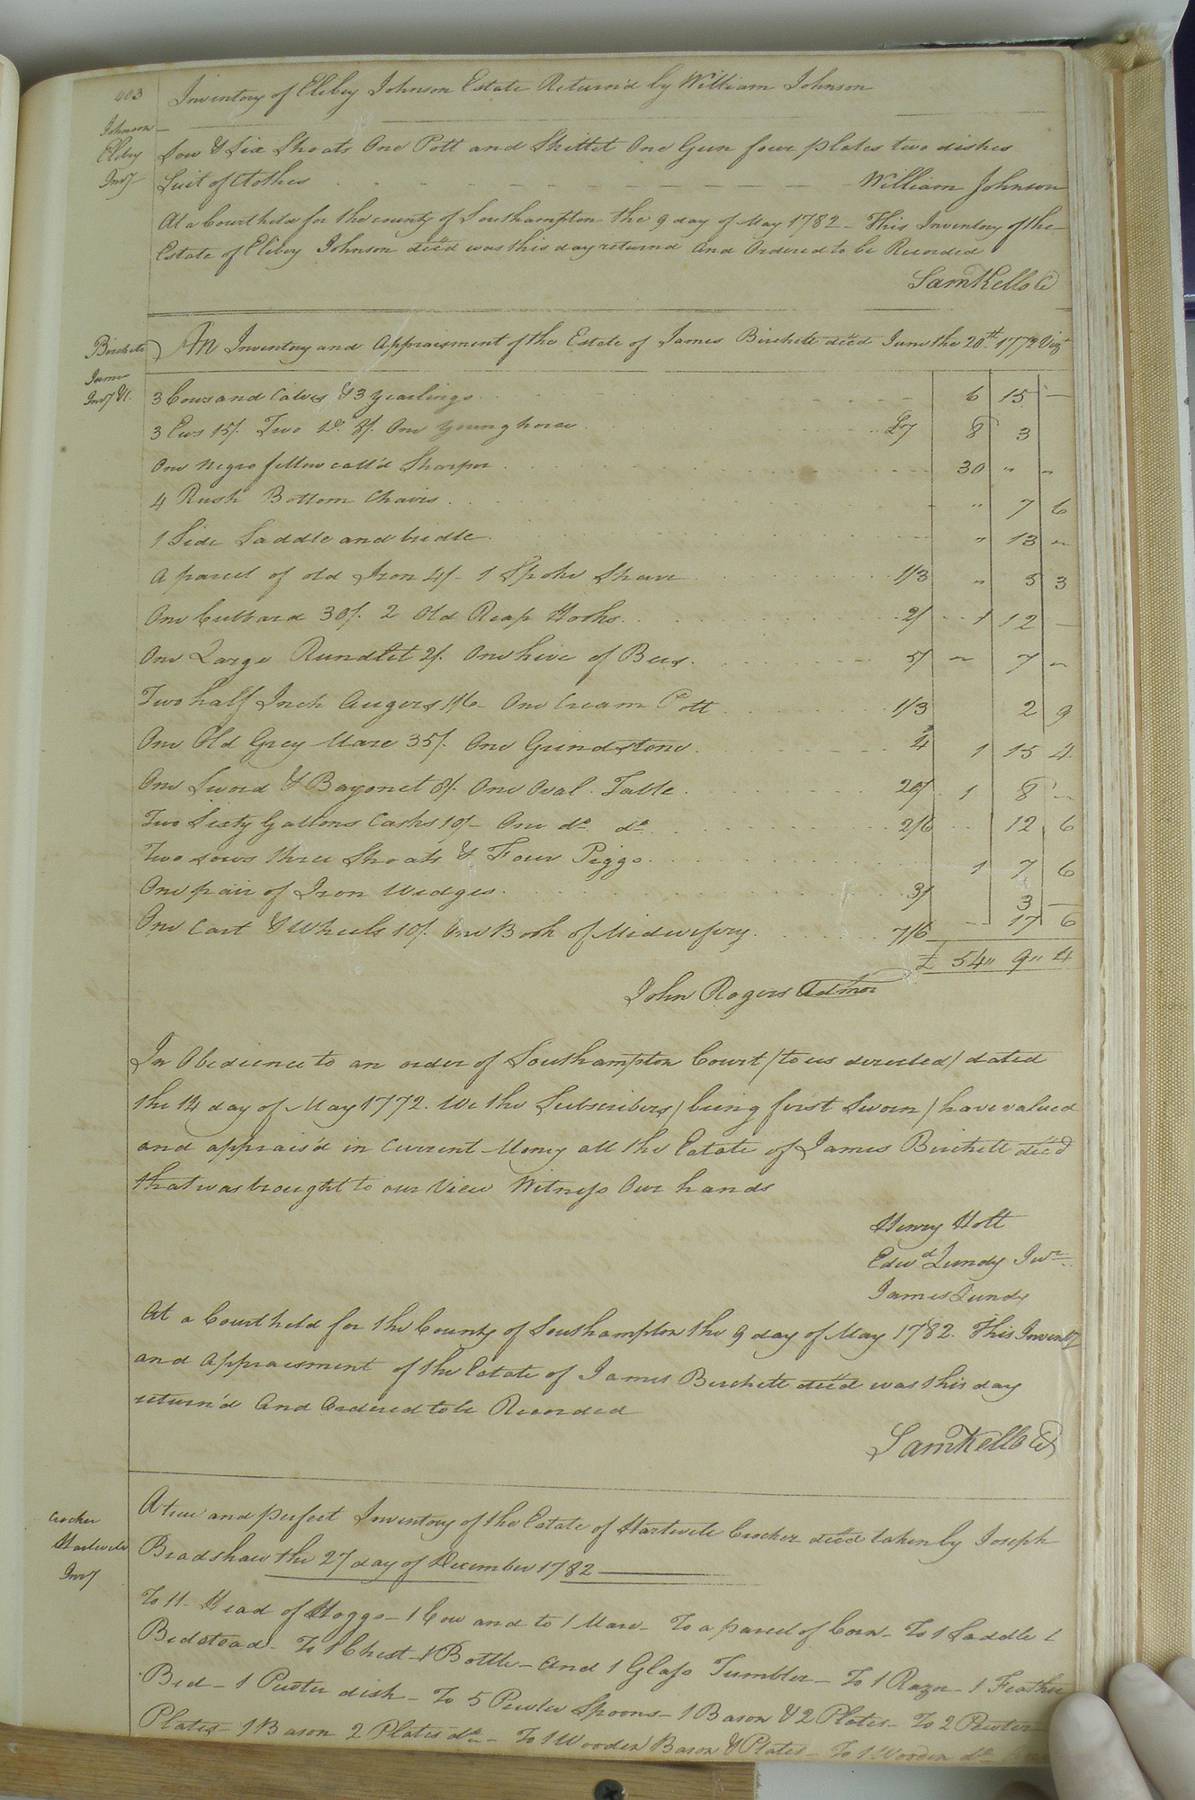 403 Inventory of Elibey Johnson Estate Return'd by William Johnson
Johnson
Elibey
Invy
Sow & Six Shoats One Pott and Skittet One Gun four plates two dishes
Suit of Clothes William Johnson
At a Court held for the county of Southampton the 9 day of May 1782 - This Inventory of the
Estate of Elibey Johnson decd was this day returnd And Ordered to be Recorded
Sam Kello C
Birchett
James
Invy &c
An Inventory and Appraisment of the Estate of James Birchett decd June the 20th 1772 Vizt
3 Cows and Calves & 3 yearlings 6 15 -
3 Ews 15/. Two do 8/. One young horse £7 8 3
One Negro fellow call'd Sharper 30 " "
4 Rush Bottom Chairs " 7 6
1 Side Saddle and bridle " 13 -
A parcel of old Iron 4/- 1 Spoke Shave 1/3 " 5 3
One Cubbard 30/. 2 Old Reap Hooks 2/ 1 12 -
One Large Rundlet 2/. One hive of Bees 5/ - 7 -
Two half Inch Augers 1/6 - One Cream Pott 1/3 2 9
One Old Grey Mare 35/. One Grindstone 4 1 15 4
One Sword & Bayonet 8/. One Oval Table 20/ 1 8 -
Two Sixty Gallons Casks 10/- One do do 2/6 12 6
Two sows three Shoats & Four Piggs 1 7 6
One pair of Iron Wedges 3/ 3 -
One Cart & Wheels 10/. One Book of Midwifery 7/6 - 17 6
£ 54 " 9 " 4
John Rogers Admor
In Obedience to an order of Southampton Court /to us directed/ dated
the 14 day of May 1772. We the Subscribers /being first Sworn/ have valued
and apprais'd in Current Money all the Estate of James Birchett decd
that was brought to our View Witness Our hands
Henry Holt
Edwd Lundy Junr
James Lundy
At a Court held for the County of Southampton the 9 day of May 1782. This Inventy
and Appraisment of the Estate of James Birchett decd was this day
return'd And Ordered to be Recorded
Sam Kello C
Crocker
Hartwell
Invy
A true and perfect Inventory of the Estate of Hartwell Crocker decd taken by Joseph
Bradshaw the 27 day of December 1782
To 11 Head of Hoggs - 1 Cow and to 1 Mare - To a parcel of Corn - To 1 Saddle 1
Bedstead - To 1 Chest - 1 Bottle - And 1 Glass Tumbler - To 1 Razor - 1 Feather
Bed - 1 Pewter dish - To 5 Pewter Spoons - 1 Bason & 2 Plates - To 2 Pewter
Plates - 1 Bason 2 Plates do - To 1 Wooden Bason & Plates - To 1 Wooden do